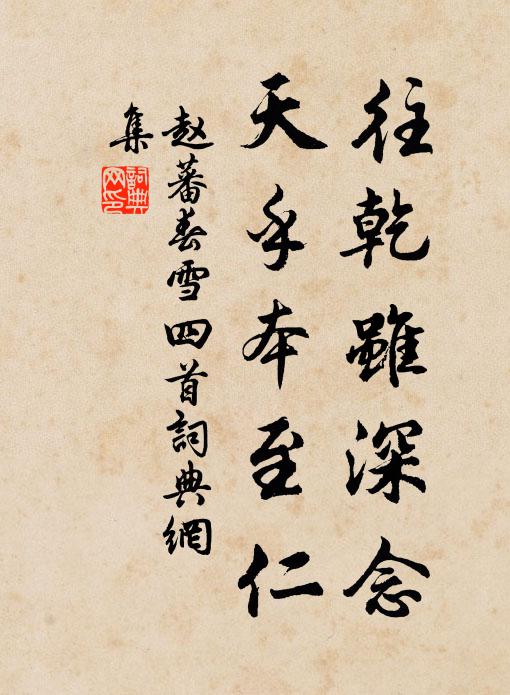 往乾雖深念
天乎本至仁
赵蕃春雪四首詞典網
集
詞典網印